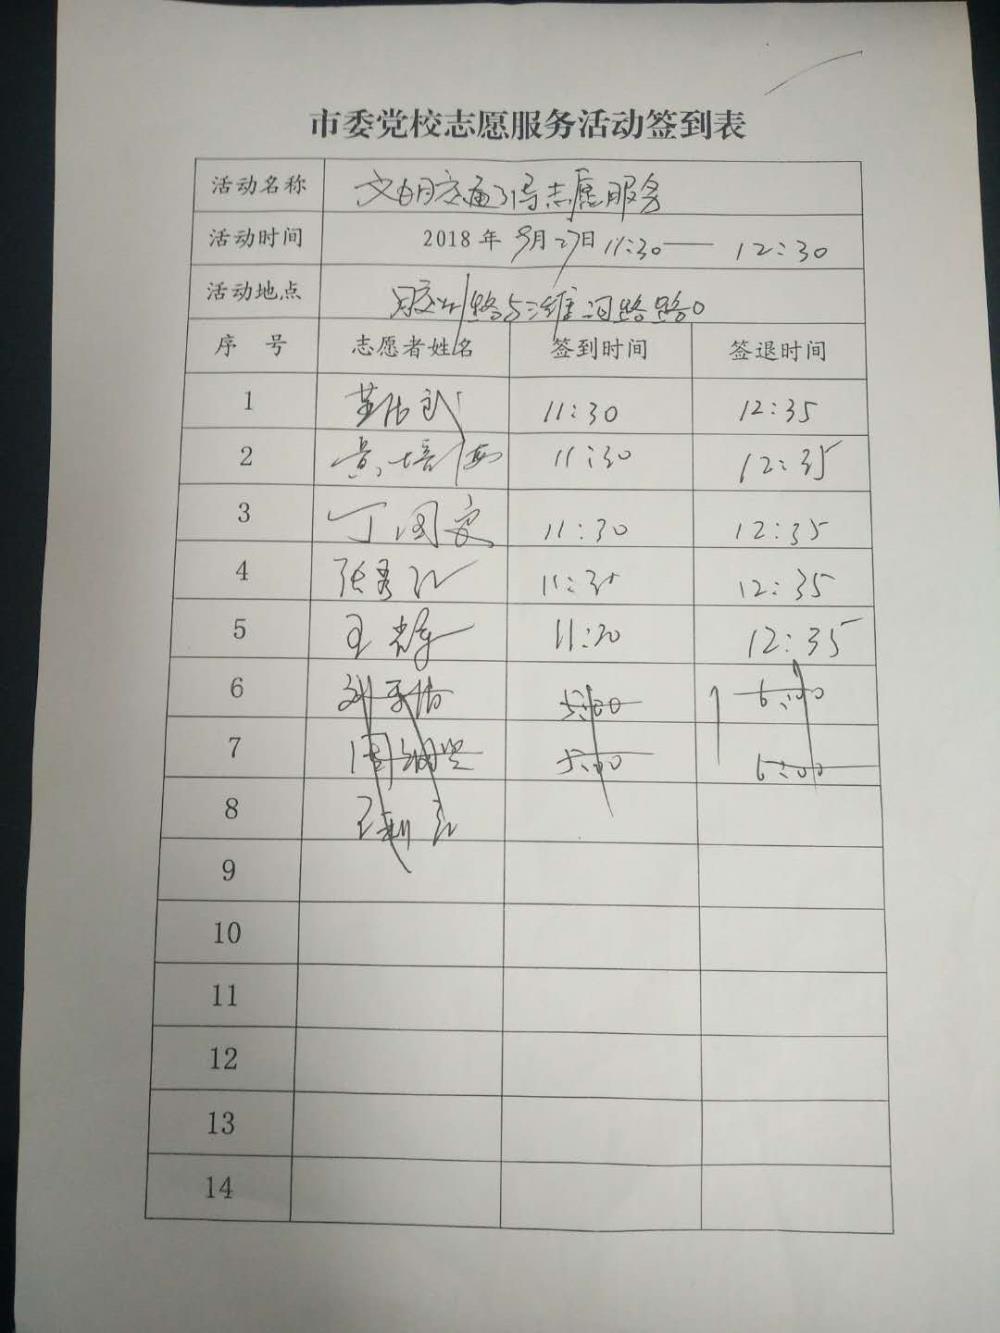 市委党校志愿服务活动签到表
活动名称 文明交通引导志愿服务
活动时间 2018年9月27日11:30—12:30
活动地点 胶州路与潍河路路口
序 号 志愿者姓名 签到时间 签退时间
1 11:30 12:35
2 11:30 12:35
3 丁国安 11:30 12:35
4 张秀红 11:30 12:35
5 王 11:30 12:35
6 刘 5:00 6:00
7 周 5:00 6:00
8 王
9
10
11
12
13
14